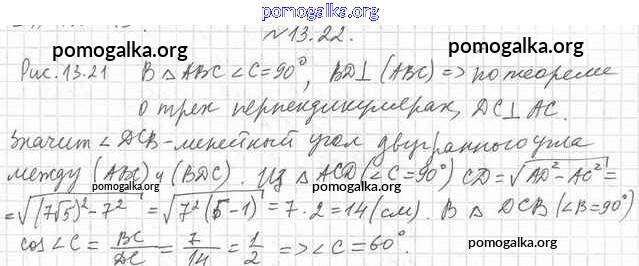 pomogalka.org
№13.22.
pomogalka.org pomogalka.org
Рис. 13.21 В △ ABC ∠C=90°, BD⊥(ABC) => по теореме
о трех перпендикулярах, DC⊥AC.
Значит ∠DCB - линейный угол двугранного угла
между (ABC) и (BDC). Из △ ACD (∠C=90°) CD=√AD²-AC² =
pomogalka.org pomogalka.org
=√(7√5)²-7² = √7²(5-1) = 7·2=14(см). В △ DCB (∠B=90°)
cos∠C = BC/DC = 7/14 = 1/2 => ∠C=60°.
pomogalka.org